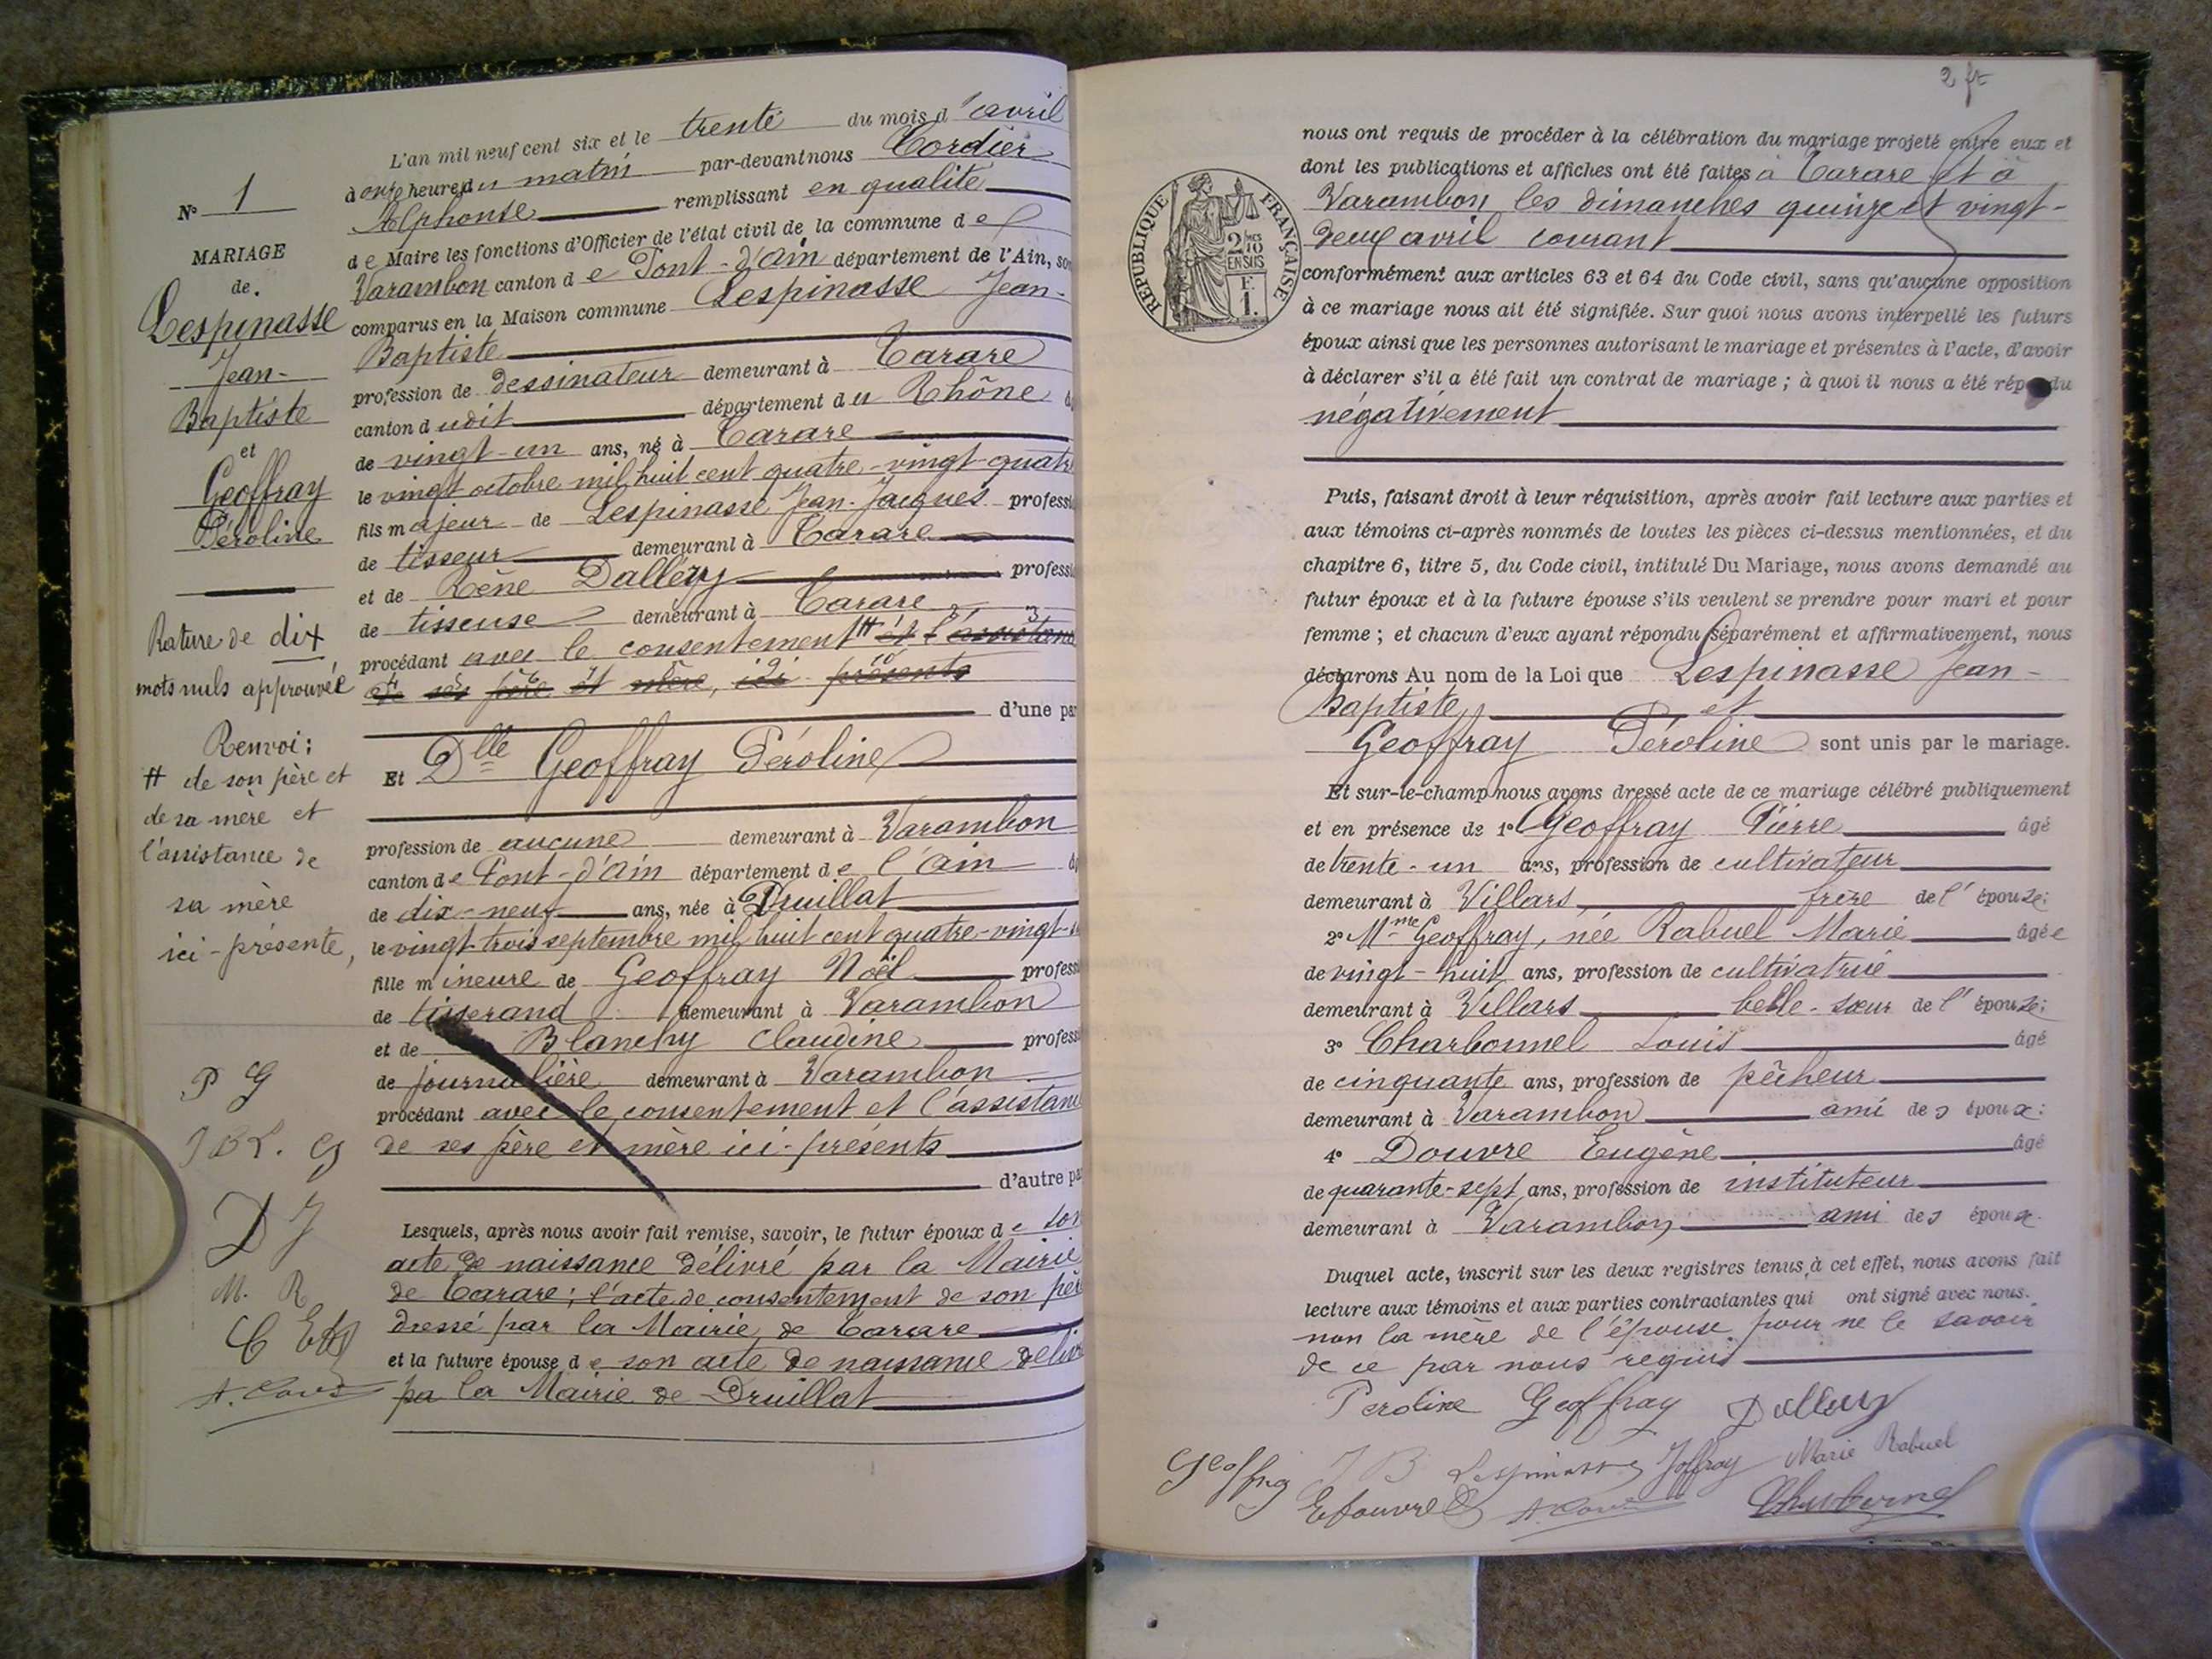 N° 1
MARIAGE
de
Lespinasse
Jean-
Baptiste
et
Geoffray
Péroline
Rature de dix
mots nuls approuvée
Renvoi :
# de son père et
de sa mère et
l'assistance de
sa mère
ici-présente,
P G
J B L. G
D J
M. R
C ED
L'an mil neuf cent six et le trente du mois d'avril
à onze heures du matin par-devant nous Cordier
Alphonse remplissant en qualité
de Maire les fonctions d'Officier de l'état civil de la commune de
Varambon canton de Pont-d'Ain département de l'Ain, so
comparus en la Maison commune Lespinasse Jean-
Baptiste
profession de dessinateur demeurant à Tarare
canton dudit département du Rhône
de vingt-un ans, né à Tarare
le vingt octobre mil huit cent quatre-vingt-quatr
fils majeur de Lespinasse Jean-Jacques professi
de tisseur demeurant à Tarare
et de Rène Dallery professi
de tisseuse demeurant à Tarare
procédant avec le consentement # et l'assistanc
de ses père et mère, ici présents
d'une pa
Et Dlle Geoffray Péroline
profession de aucune demeurant à Varambon
canton de Pont-d'Ain département de l'Ain
de dix-neuf ans, née à Druillat
le vingt-trois septembre mil huit cent quatre-vingt-s
fille mineure de Geoffray Noël profess
de tisserand demeurant à Varambon
et de Blanchy Claudine profess
de journalière demeurant à Varambon
procédant avec le consentement et l'assistanc
de ses père et mère ici-présents
d'autre pa
Lesquels, après nous avoir fait remise, savoir, le futur époux de son
acte de naissance délivré par la Mairie
de Tarare ; l'acte de consentement de son pèr
dressé par la Mairie de Tarare
et la future épouse de son acte de naissance déliv
pa la Mairie de Druillat
2 ft
RÉPUBLIQUE FRANÇAISE
2/10 EN SUS
F. 1.
nous ont requis de procéder à la célébration du mariage projeté entre eux et
dont les publications et affiches ont été faites à Tarare et à
Varambon les dimanches quinze et vingt-
deux avril courant
conformément aux articles 63 et 64 du Code civil, sans qu'aucune opposition
à ce mariage nous ait été signifiée. Sur quoi nous avons interpellé les futurs
époux ainsi que les personnes autorisant le mariage et présentes à l'acte, d'avoir
à déclarer s'il a été fait un contrat de mariage ; à quoi il nous a été répondu
négativement
Puis, faisant droit à leur réquisition, après avoir fait lecture aux parties et
aux témoins ci-après nommés de toutes les pièces ci-dessus mentionnées, et du
chapitre 6, titre 5, du Code civil, intitulé Du Mariage, nous avons demandé au
futur époux et à la future épouse s'ils veulent se prendre pour mari et pour
femme ; et chacun d'eux ayant répondu séparément et affirmativement, nous
déclarons Au nom de la Loi que Lespinasse Jean-
Baptiste et
Geoffray Péroline sont unis par le mariage.
Et sur-le-champ nous avons dressé acte de ce mariage célébré publiquement
et en présence de 1° Geoffray Pierre âgé
de trente-un ans, profession de cultivateur
demeurant à Villars frère de l'épouse ;
2° Mme Geoffray, née Rabuel Marie âgée
de vingt-huit ans, profession de cultivatrice
demeurant à Villars belle-sœur de l'épouse ;
3° Charbonnel Louis âgé
de cinquante ans, profession de pêcheur
demeurant à Varambon ami des époux :
4° Douvre Eugène âgé
de quarante-sept ans, profession de instituteur
demeurant à Varambon ami des époux.
Duquel acte, inscrit sur les deux registres tenus à cet effet, nous avons fait
lecture aux témoins et aux parties contractantes qui ont signé avec nous.
non la mère de l'épouse pour ne le savoir
de ce par nous requis
Peroline Geoffray Dallery
Geoffray J B Lespinasse Joffray Marie Rabuel
EDouvre Charbonnel